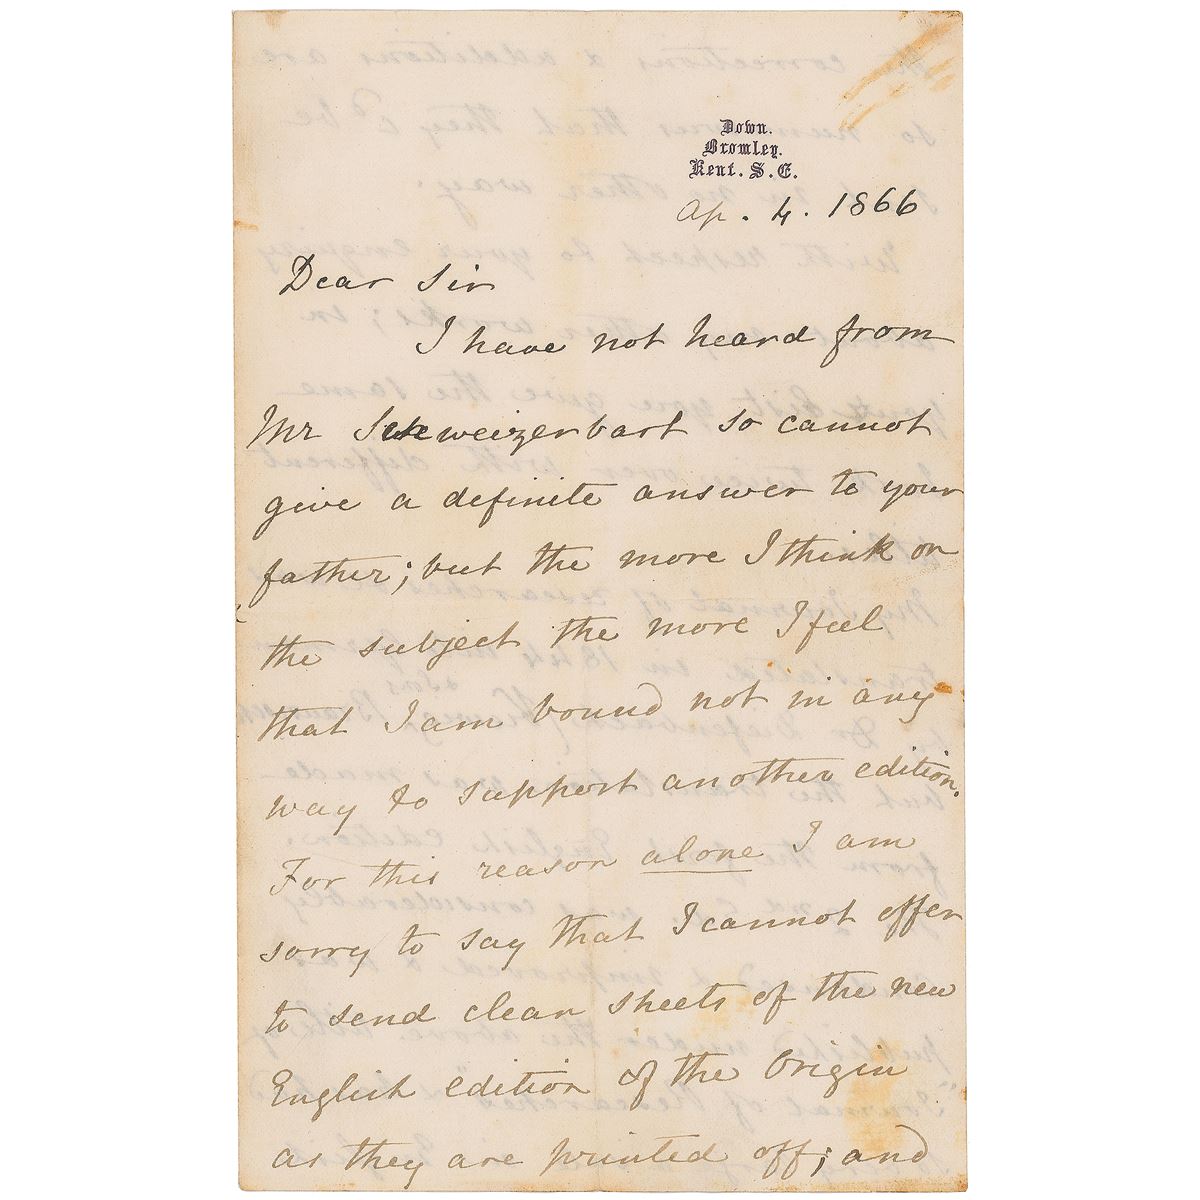 Down.
Bromley.
Kent. S.E.
Ap. 4. 1866
Dear Sir
I have not heard from
Mr Schweizerbart so cannot
give a definite answer to your
father; but the more I think on
the subject the more I feel
that I am bound not in any
way to support another edition.
For this reason alone I am
sorry to say that I cannot offer
to send clean sheets of the new
English edition of the Origin
as they are printed off; and